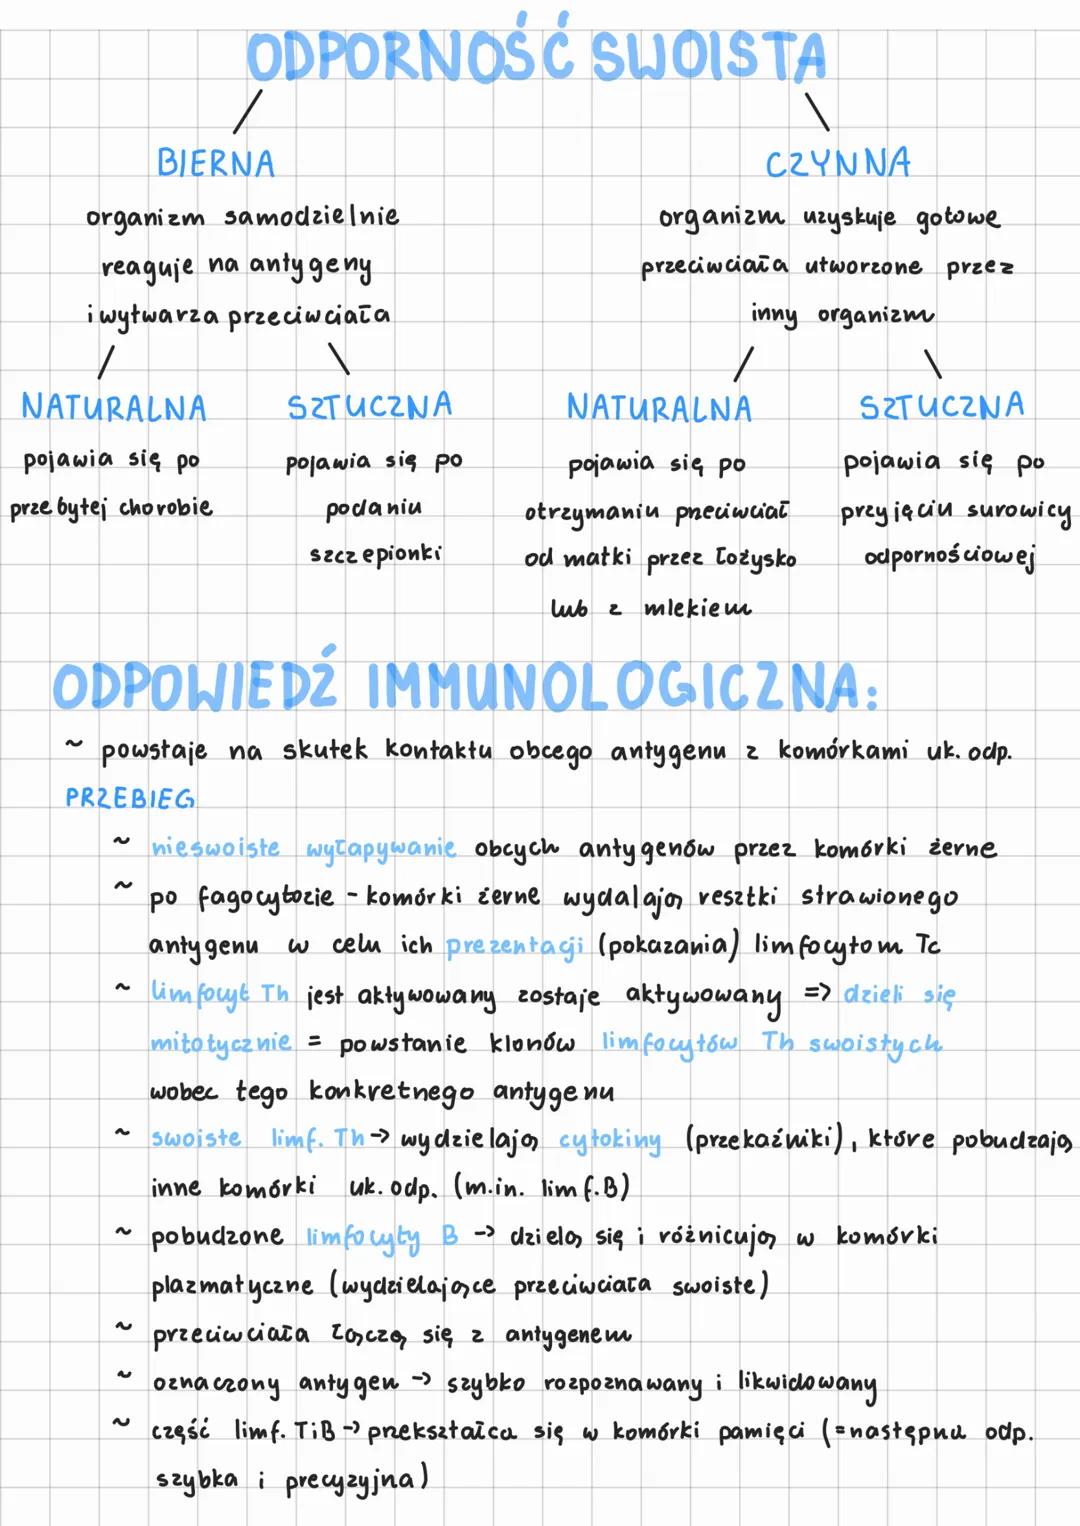 ODPORNOŚĆ SWOISTA
BIERNA
organizm samodzielnie
reaguje na antygeny
i wytwarza przeciwciała
NATURALNA
pojawia się po
przebytej chorobie
SZTUCZNA
pojawia się po
podaniu
szczepionki
CZYNNA
organizm uzyskuje gotowe
przeciwciała utworzone przez
inny organizm
NATURALNA
pojawia się po
otrzymaniu przeciwciał
od matki przez łożysko
lub z mlekiem
SZTUCZNA
pojawia się po
przyjęciu surowicy
odpornościowej
ODPOWIEDŹ IMMUNOLOGICZNA:
~ powstaje na skutek kontaktu obcego antygenu z komórkami uk. odp.
PRZEBIEG
~ nieswoiste wyłapywanie obcych antygenów przez komórki żerne
~ po fagocytozie - komórki żerne wydalają resztki strawionego
antygenu w celu ich prezentacji (pokazania) limfocytom Tc
~ limfocyt Th jest aktywowany zostaje aktywowany => dzieli się
mitotycznie = powstanie klonów limfocytów Th swoistych
wobec tego konkretnego antygenu
~ swoiste limf. Th → wydzielają cytokiny (przekaźniki), które pobudzają
inne komórki uk. odp. (m.in. limf. B)
~ pobudzone limfocyty B -> dzielą się i różnicują w komórki
plazmatyczne (wydzielające przeciwciała swoiste)
~ przeciwciała łączą się z antygenem
~ oznaczony antygen -> szybko rozpoznawany i likwidowany
~ część limf. T i B -> przekształca się w komórki pamięci (= następna odp.
szybka i precyzyjna)